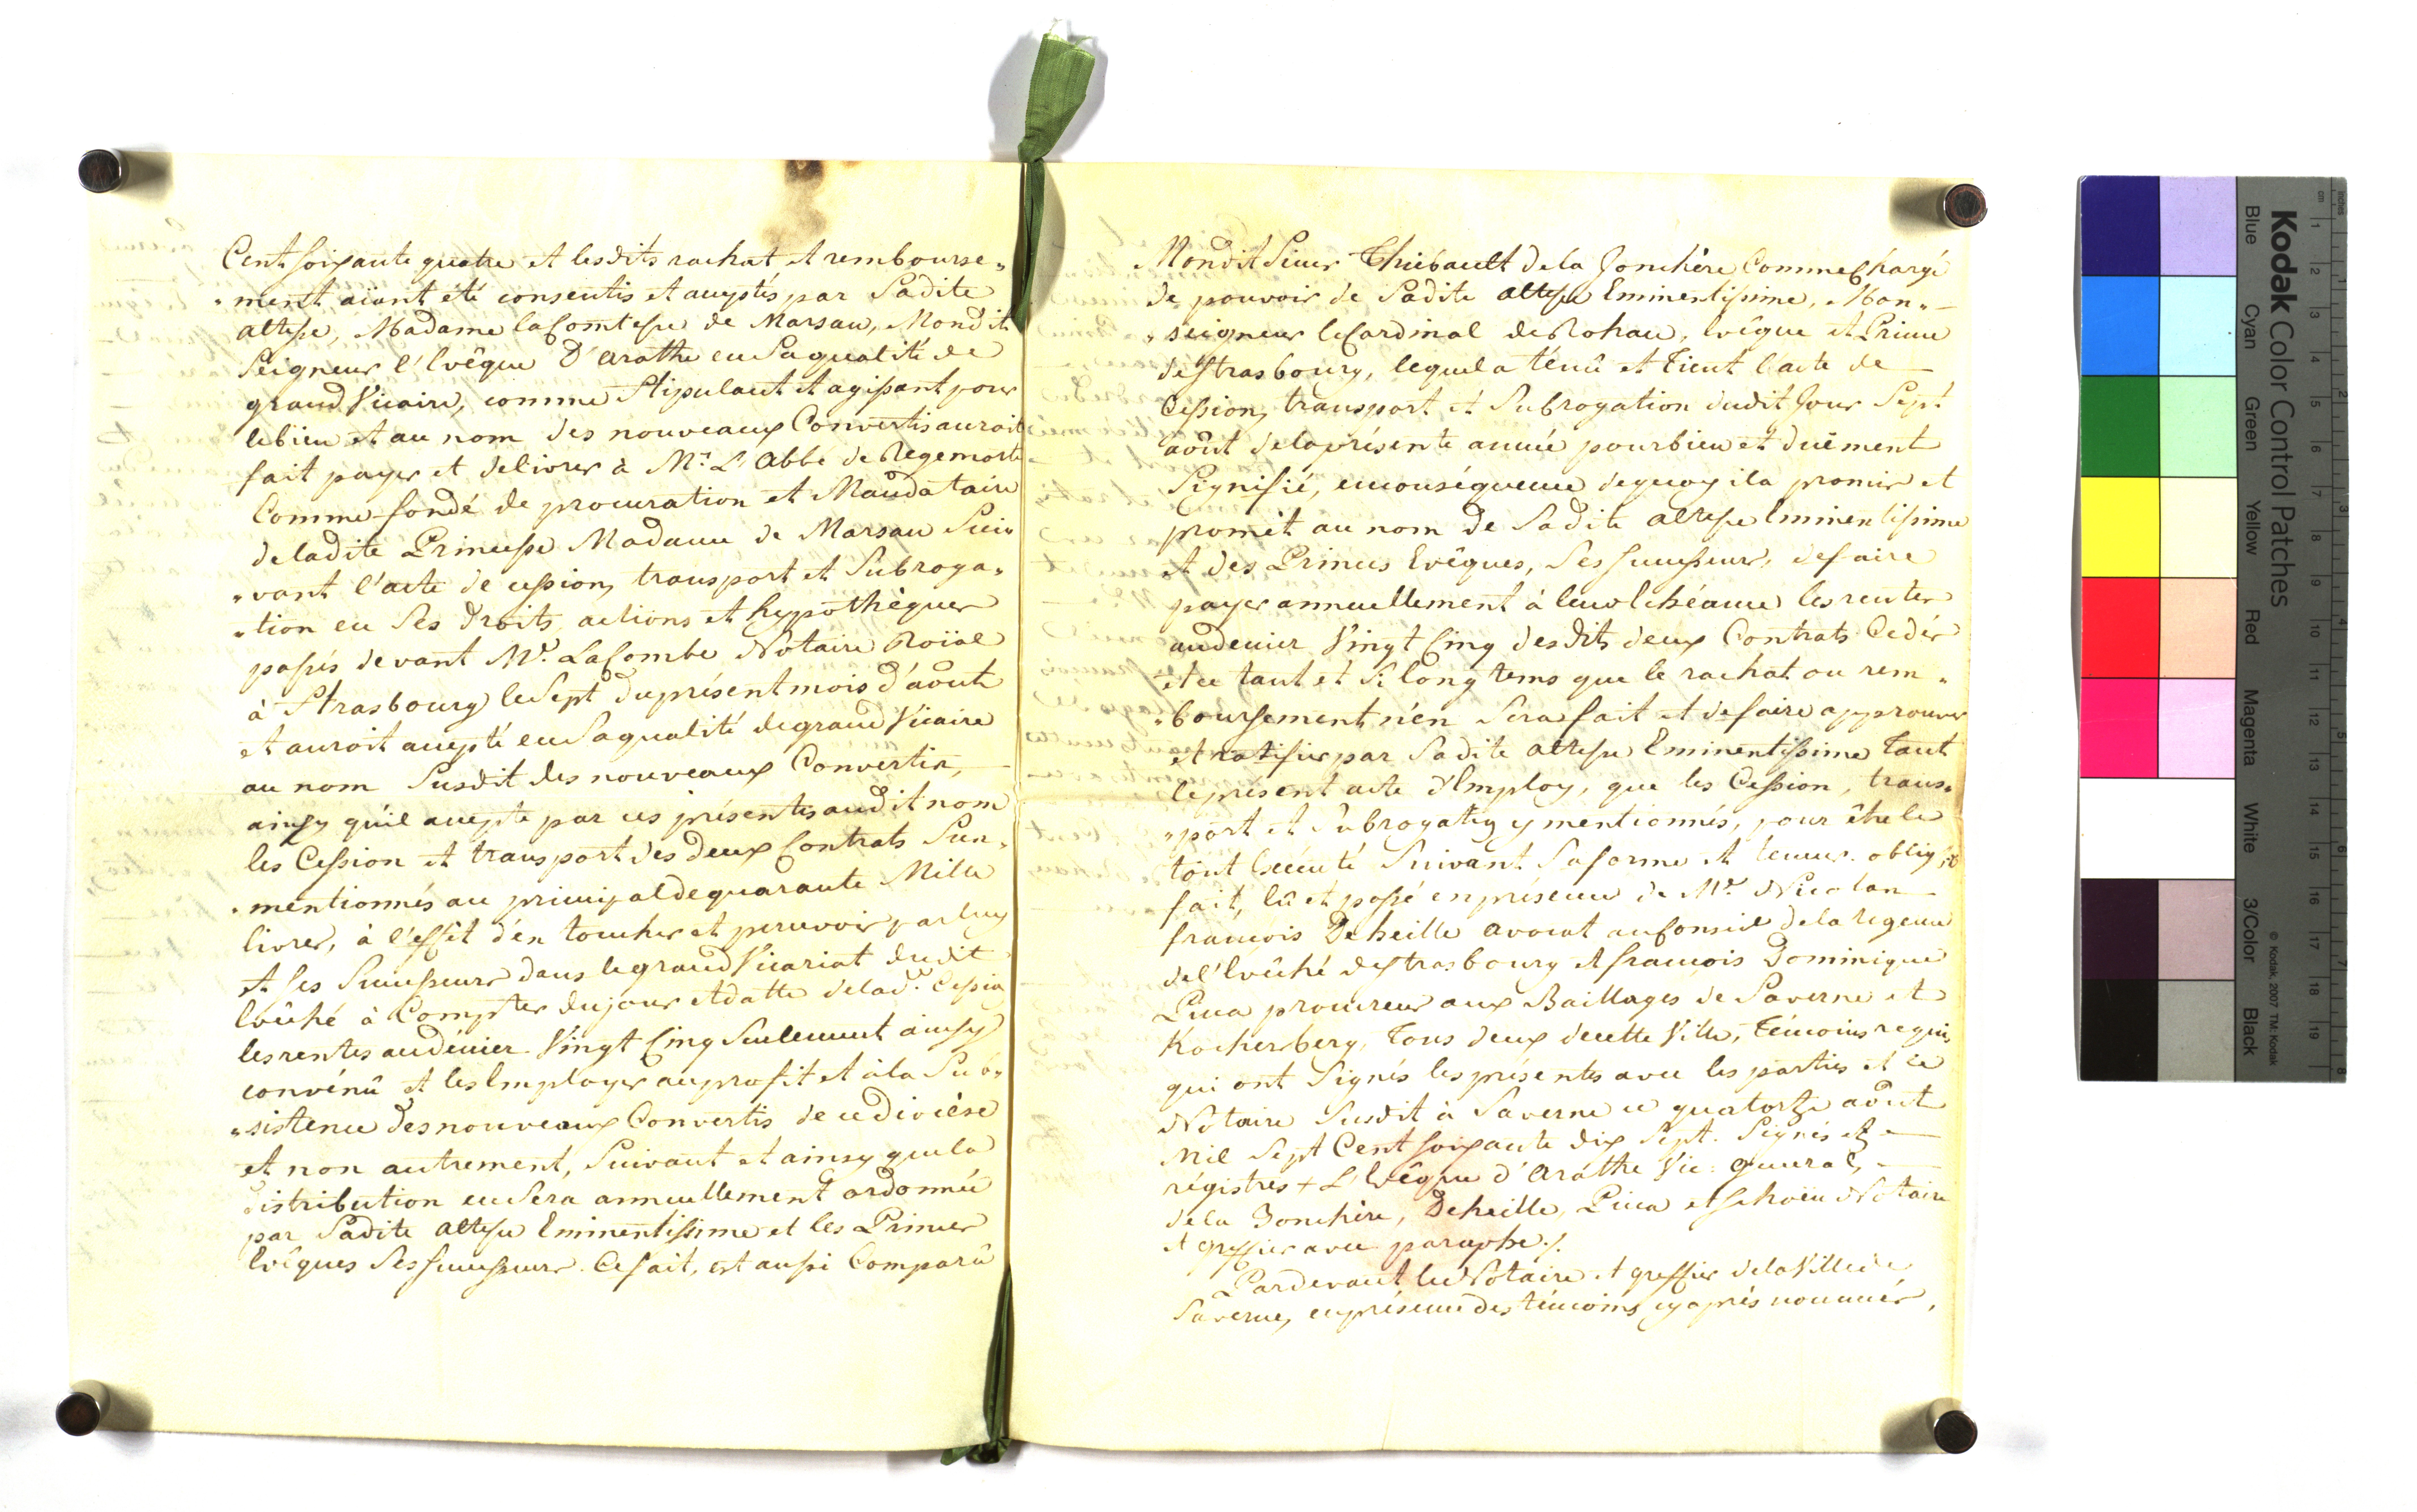 Cent soixante quatre et lesdits rachat et rembourse„
„ment aïant été consentis et acceptés par Sadite
altesse, Madame la Comtesse de Marsan, Mondit
Seigneur l'Evêque D'arathe en Sa qualité de
grand Vicaire, comme Stipulant et agissant pour
le bien et au nom des nouveaux Convertis auroit
fait payer et delivrer à Mr. L'Abbé de Regemorte
Comme fondé de procuration et Mandataire
de ladite Princesse Madame de Marsan Sui„
„vant l'acte de cession, transport et Subroga„
„tion en Ses droits, actions et hypothèques
passés devant Me. LaCombe Notaire Roïal
à Strasbourg le Sept du présent mois d'août
et auroit accepté en Sa qualité de grand Vicaire
au nom Susdit des nouveaux Convertis,
ainsy qu'il accepte par ces présentes audit nom
les Cession et transport des deux Contrats Sus„
„mentionnés au principal de quarante Mille
livres, à l'effêt d'en toucher et percevoir par luy
et Ses Successeurs dans le grand Vicariat dudit
Evêché à Compter du jour et datte de lade. Cession
les rentes au dénier Vingt Cinq Seulement ainsy
convénû et les Employer au profit et à la Sub„
„sistence des nouveaux Convertis de ce diocèse
et non autrement, Suivant et ainsy que la
distribution en Sera annuellement ordonnée
par Sadite altesse Eminentissime et les Princes
Evêques Ses Successeurs. Ce fait, est aussi Comparû
Mondit Sieur Thiebault de la Jonchère Comme Chargé
de pouvoir de Sadite altesse Eminentissime, Mon„
„seigneur le Cardinal de Rohan, Evêque et Prince
de Strasbourg, lequel a ténû et tient l'acte de
Cession, transport et Subrogation dudit Jour Sept
août de la présente année pour bien et duëment
Signifié, en conséquence de quoy il a promis et
promèt au nom de Sadite altesse Eminentissime
et des Princes Evêques, Ses Successeurs, de faire
payer annuellement à leur Echéance les rentes
au denier Vingt Cinq desdits deux Contrats Cedés
et ce tant et Si longtems que le rachat ou rem„
„boursement n'en Sera fait et de faire approuver
et ratifier par Sadite altesse Eminentissime tant
le présent acte d'Employ, que les Cession, trans„
„port et Subrogation y mentionnés, pour être le
tout Executé Suivant Sa forme et teneur. obligt.
fait, lû et passé en présence de Me. Nicolas
francois Deheille avocat au Conseil de la regence
de l'Evêché de Strasbourg et francois Dominique
Pica procureur aux Baillages de Saverne et
Kochersberg, tous deux de cette Ville, témoins requis
qui ont Signés les présentes avec les parties et le
Notaire Susdit à Saverne ce quatorze août
Mil Sept Cent soixante dix Sept. Signés et
régistres + L'Evêque d'Arathe Vic: General,
de la Jonchère, Deheille, Pica et Schoën Notaire
et greffier avec paraphe ./.
Pardevant le Notaire et greffier de la Ville de
Saverne, en présence des témoins cy après nommés,
Kodak Color Control Patches
Blue Cyan Green Yellow Red Magenta White 3/Color Black
© Kodak, 2007 TM: Kodak
inches 1 2 3 4 5 6 7 8
cm 1 2 3 4 5 6 7 8 9 10 11 12 13 14 15 16 17 18 19